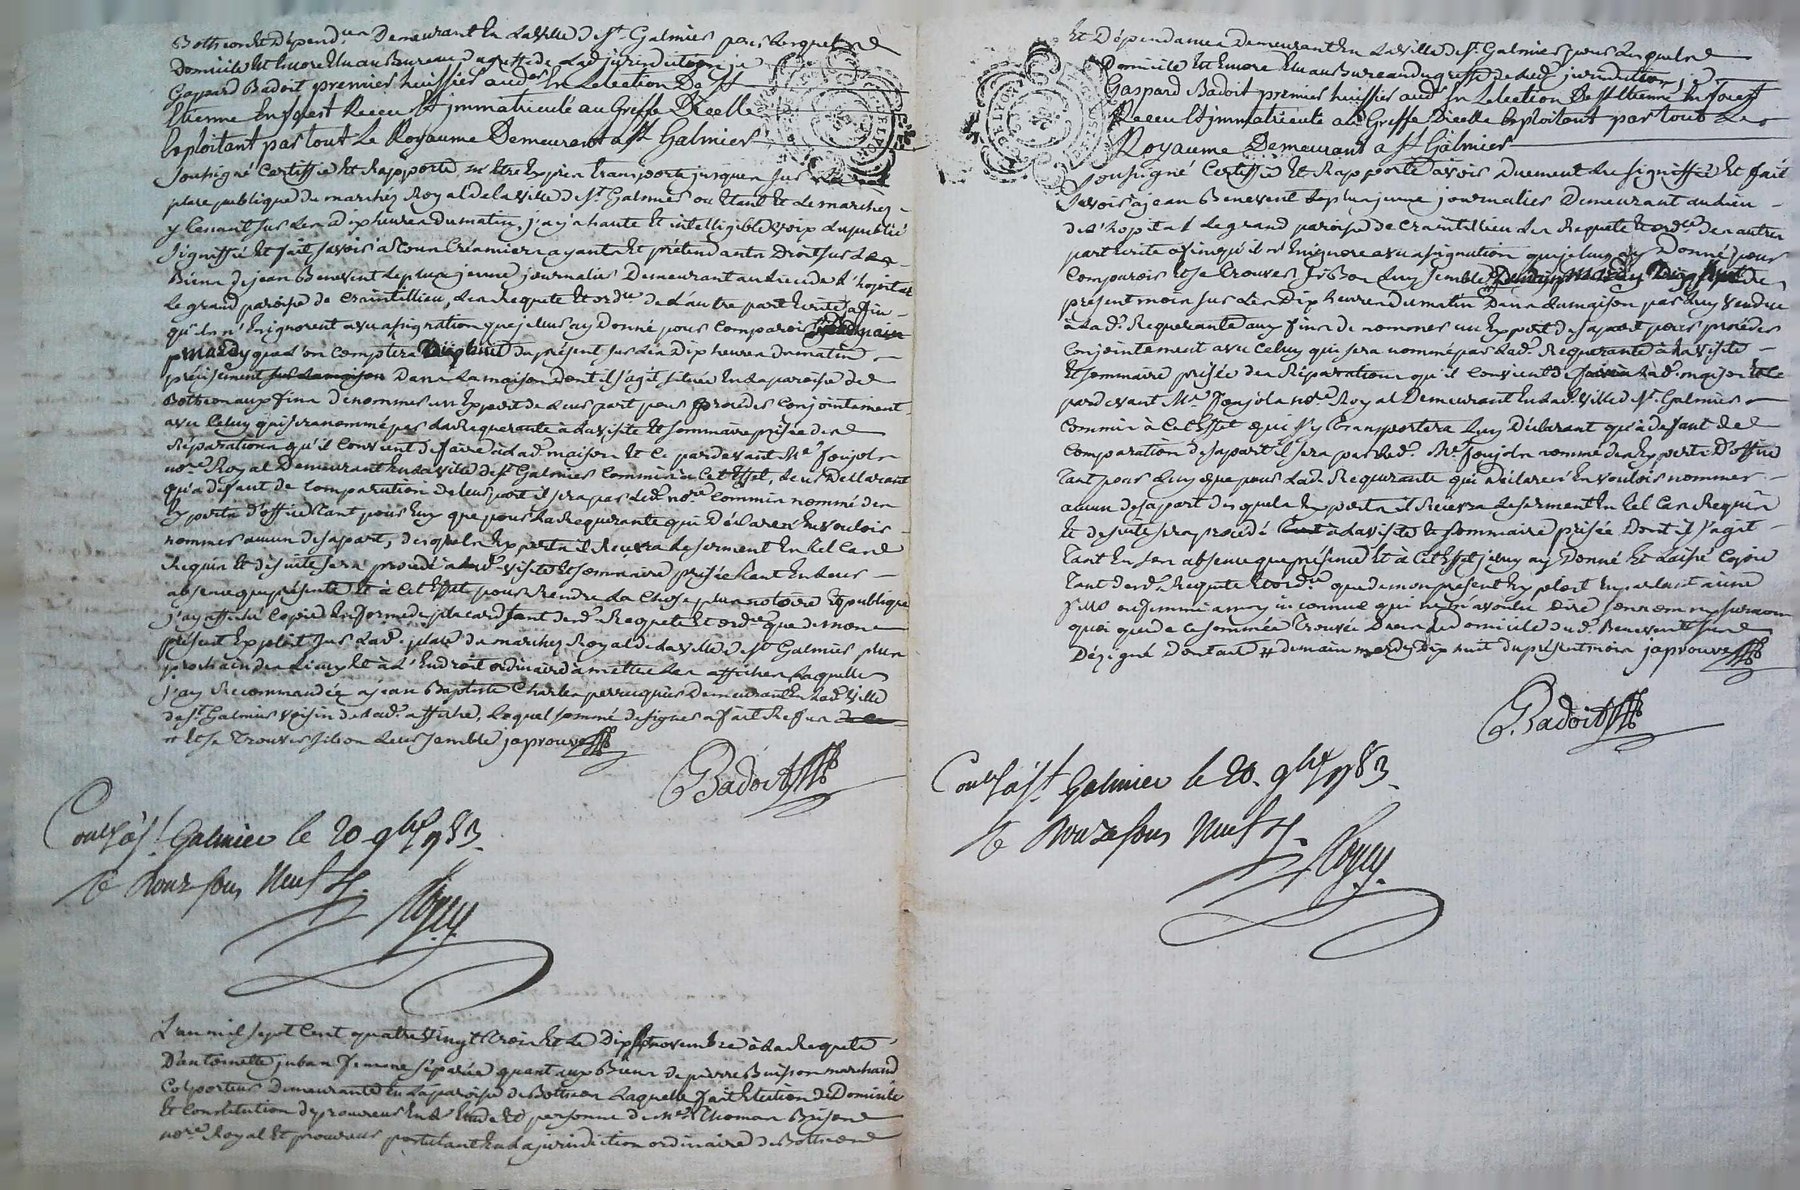 Botheon Et Dépend.ces Demeurant En La Ville de St. Galmier pour lequel
Domicile Et Encore Elu au Bureau du greffe de Lad. jurisdiction je
Gaspard Badoit premier huissier aud.er En Lelection De St
Etienne En forest Receu Et immatriculé au Greffe Dicelle
Exploitant par tout Le Royaume Demeurant a St Galmier
soussigné Certiffie Et Rapporte, m'Etre Exprès transporté jusques sur La
place publique du marchez Royal de la Ville de St. Galmier ou Etant Et Le marchez
y tenant sur Les Dix heures du matin, j'ay a haute Et intelligible voix Lu publié
signiffié Et fait savoir a tous Créanciers ayants Et prétendants Droit sur Les
Biens de jean Benevent Le plus jeune journalier Demeurant au Lieu de L'hopital
Le grand paroisse de Craintillieu, Les Requete Et ord.ce de L'autre part Ecrite affin
qu'ils n'En ignorent avec assignation que je leur ay Donné pour Comparoir
mardy que L'on Comptera Dix huit du présent sur Les Dix heures du matin
précisement sur La maison Dans La maison dont il s'agit située En La paroisse de
Botheon aux fins De nommer un Expert de Leur part pour proceder Conjointement
avec Celuy qui sera nommé par La Requerante à La Visite Et Sommaire prisée des
Réparations qu'il Convient de faire à Lad. maison Et Ce pardevant Me Fonjols
no.re Royal Demeurant En La Ville de St Galmier Commis à Cet Effet, Leur Déclarant
qu'a défaut de Comparution de Leur part il sera par Led. no.re Commis nommé des
Experts d'office tant pour Eux que pour La Requerante qui Déclare n'En vouloir
nommer aucun de sa part, desquels Experts il Recevra Le serment En tel Cas
Requis Et de suite sera procédé à Lad. Visite Et Sommaire prisée tant En Leur
absence que présence Et à Cet Effet pour Rendre La Chose plus notoire Et publique
j'ay affiché Copie En forme de placard tant desd. Requete Et ord.ce que de mon
présent Exploit sur Lad. place du marchez Royal de La Ville de St Galmier
prochain des Lieux Et à L'Endroit ordinaire à mettre Les affiches Laquelle
j'ay Recommandée a jean Baptiste Charles perruquier Demeurant En Lad. Ville
de St. Galmier voisin de Lad. affiche, Lequel sommé de signer a fait Refus
Et se trouver si bon Leur semble japrouve
GBadoit
Conlé à St. Galmier le 20 9bre 1783.
R. Quinze sous Neuf d.
L'an mil sept Cent quatre Vingt trois Et Le Dix Sept novembre à La Requete
D'antoinette juban femme séparée quant aux Biens de pierre Buisson marchand
Colporteur Demeurante En La paroisse de Botheon Laquelle fait Election de Domicile
Et Constitution de procureur En L'Etude Et personne de Me Thomas
no.re Royal Et procureur postulant En La jurisdiction ordinaire de Botheon
Et Dépendances demeurant En La Ville de St. Galmier pour Lequel
Domicile Et Encore Elu au Bureau du greffe de Lad. jurisdiction, je
Gaspard Badoit premier huissier aud.er En Lelection De St Etienne En forest
Receu Et immatriculé au Greffe Dicelle Exploitant par tout Le
Royaume Demeurant a St Galmier
soussigné Certiffié Et Rapporte avoir Duement Lu signiffié Et fait
savoir a jean Benevent Le plus jeune journalier Demeurant au Lieu
de L'hopital Le grand paroisse de Craintillieu Les Requete Et ord.ce de L'autre
part Ecrite afin qu'il n'En ignore avec assignation que je luy ay Donné pour
Comparoir Et se trouver si Bon Luy semble mardy Dix huit du
présent mois sur Les Dix heures du matin Dans La maison par Luy Vendue
à Lad. Requerante aux fins de nommer un Expert de sa part pour procéder
Conjointement avec Celuy qui sera nommé par Lad. Requerante à La Visite
Et Sommaire prisée des Réparations qu'il Convient de faire à Lad. maison Et Ce
pardevant Me. Fonjols no.re Royal Demeurant En Lad. Ville de St. Galmier
Commis à Cet Effet qui s'y transportera Luy Déclarant qu'à défaut de
Comparution de sa part il sera par Led. Me. Fonjols nommé des Experts D'office
tant pour Luy que pour Lad. Requerante qui Déclare n'En vouloir nommer
aucun de sa part desquels Experts il Recevra Le serment En tel Cas Requis
Et de suite sera procédé à La Visite Et Sommaire prisée Dont il s'agit
tant En son absence que présence Et à Cet Effet je luy ay Donné Et Laissé Copie
tant desd. Requete Et ord.ce que de mon présent Exploit En parlant a une
fille ou femme a moy inconnue qui ne m'a voulu Dire son nom ny surnom
quoi que de ce sommée trouvée Dans Le domicile dud. Benevent
Désigné Dont acte # demain mardy Dix huit du présent mois japrouve
GBadoit
Conlé à St. Galmier le 20. 9bre 1783.
R. Quinze sous Neuf d.